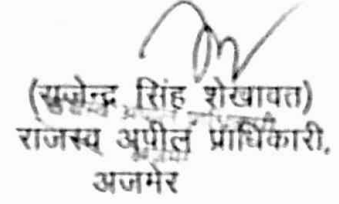 (सुजेन्द्र सिंह शेखावत)
राजस्व अपील प्राधिकारी,
अजमेर